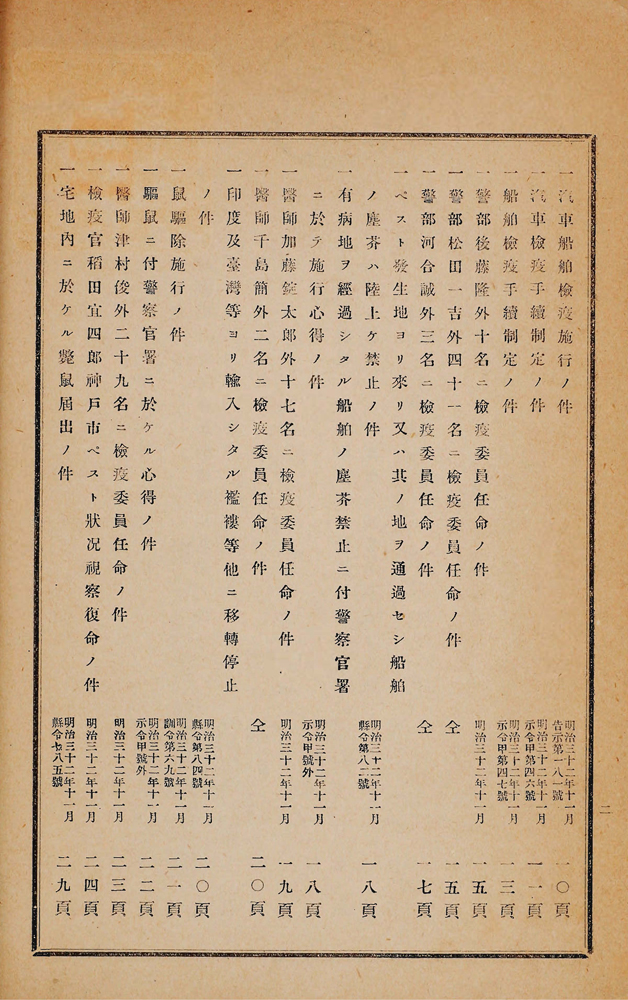 一汽車船舶檢疫施行ノ件 明治三十二年十一月告示第一八一號 一〇頁
一汽車檢疫手續制定ノ件 明治三十二年十一月示令甲第四六號 一一頁
一船舶檢疫手續制定ノ件 明治三十二年十一月示令甲第四七號 一三頁
一警部後藤隆外十名ニ檢疫委員任命ノ件 明治三十二年十一月 一五頁
一警部松田一吉外四十一名ニ檢疫委員任命ノ件 仝 一五頁
一警部河合誠外三名ニ檢疫委員任命ノ件 仝 一七頁
一ペスト發生地ヨリ來リ又ハ其ノ地ヲ通過セシ船舶
ノ塵芥ハ陸上ケ禁止ノ件 明治三十二年十一月縣令第八二號 一八頁
一有病地ヲ經過シタル船舶ノ塵芥禁止ニ付警察官署
ニ於テ施行心得ノ件 明治三十二年十一月示令甲號外 一八頁
一醫師加藤錠太郎外十七名ニ檢疫委員任命ノ件 明治三十二年十一月 一九頁
一醫師千島簡外二名ニ檢疫委員任命ノ件 仝 二〇頁
一印度及臺灣等ヨリ輸入シタル襤褸等他ニ移轉停止
ノ件 明治三十二年十一月縣令第八四號 二〇頁
一鼠驅除施行ノ件 明治三十二年十一月訓令第六九號 二一頁
一驅鼠ニ付警察官署ニ於ケル心得ノ件 明治三十二年十一月示令甲號外 二二頁
一醫師津村俊外二十九名ニ檢疫委員任命ノ件 明治三十二年十一月 二三頁
一檢疫官稻田宜四郎神戸市ペスト狀况視察復命ノ件 明治三十二年十一月 二四頁
一宅地內ニ於ケル斃鼠屆出ノ件 明治三十二年十一月縣令第八五號 二九頁
二